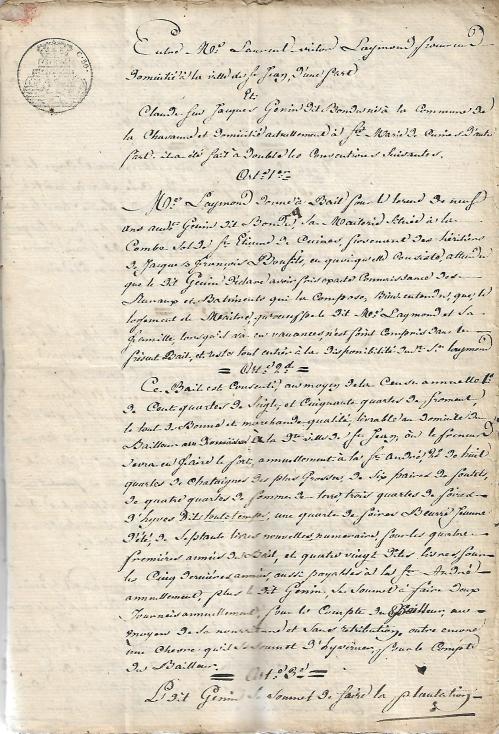 Entre M.e Laurent victor Laymond procureur
domicilié à la ville de St Jean, d'une part
Et
Claude feu Jacques Génin dit Bonda né à la Commune de
la Chavanne et domicilié actuellement à Ste Marie de Cuines d'autre
part. il a été fait à double les Conventions suivantes.
Art.e 1.er
M.e Laymond donne à Bail pour le terme de neuf
ans audit Génin dit Bonda sa Maiterie située à la
Combe Sol de St Etienne de Cuines, provenant des héritiers
de Jacques François Bouffit, en quoi qu'elle Consiste attendu
que le dit Génin déclare avoir parfaite Connaissance des
fonds et Batiments qui la Compose, Bien entendu, que le
logement de Maitre, qu'occupe le dit M.e Laymond et sa
famille, lorsqu'il va en vacances, n'est point Compris dans le
présent Bail, et reste tout entier à la disponibilité du Sr Laymond
Art.e 2.d
Ce Bail est Consenti, au moyen de la Cense annuelle 1.e
de Cent quartes de Seigle, et Cinquante quartes de froment
le tout de Bonne et marchande qualité, livrable au domicile du
Bailleur à la dite ville de St Jean, où le preneur
devra en faire le port, annuellement à la St André 2.e de huit
quartes de Chataignes des plus Grosses, de Six paires de poulets,
de quatre quartes de pommes de terre, trois quartes de poires
d'hyver dit toutetemps, une quarte de poires Beurré jaune
d'été, de Septante livres nouvelles numéraire, pour les quatre
premières années du Bail, et quatre vingt dites livres pour
les Cinq dernières années, aussi payables à la St André
annuellement, plus le dit Génin, se soumet à faire deux
Journées annuellement, pour le Compte du Bailleur, au
moyen de sa nourriture et sans rétribution, outre encore
une Chevre qu'il se soumet d'hyverner, pour le Compte
du Bailleur.
Art.e 3.e
Le dit Génin se soumet de faire la plantation